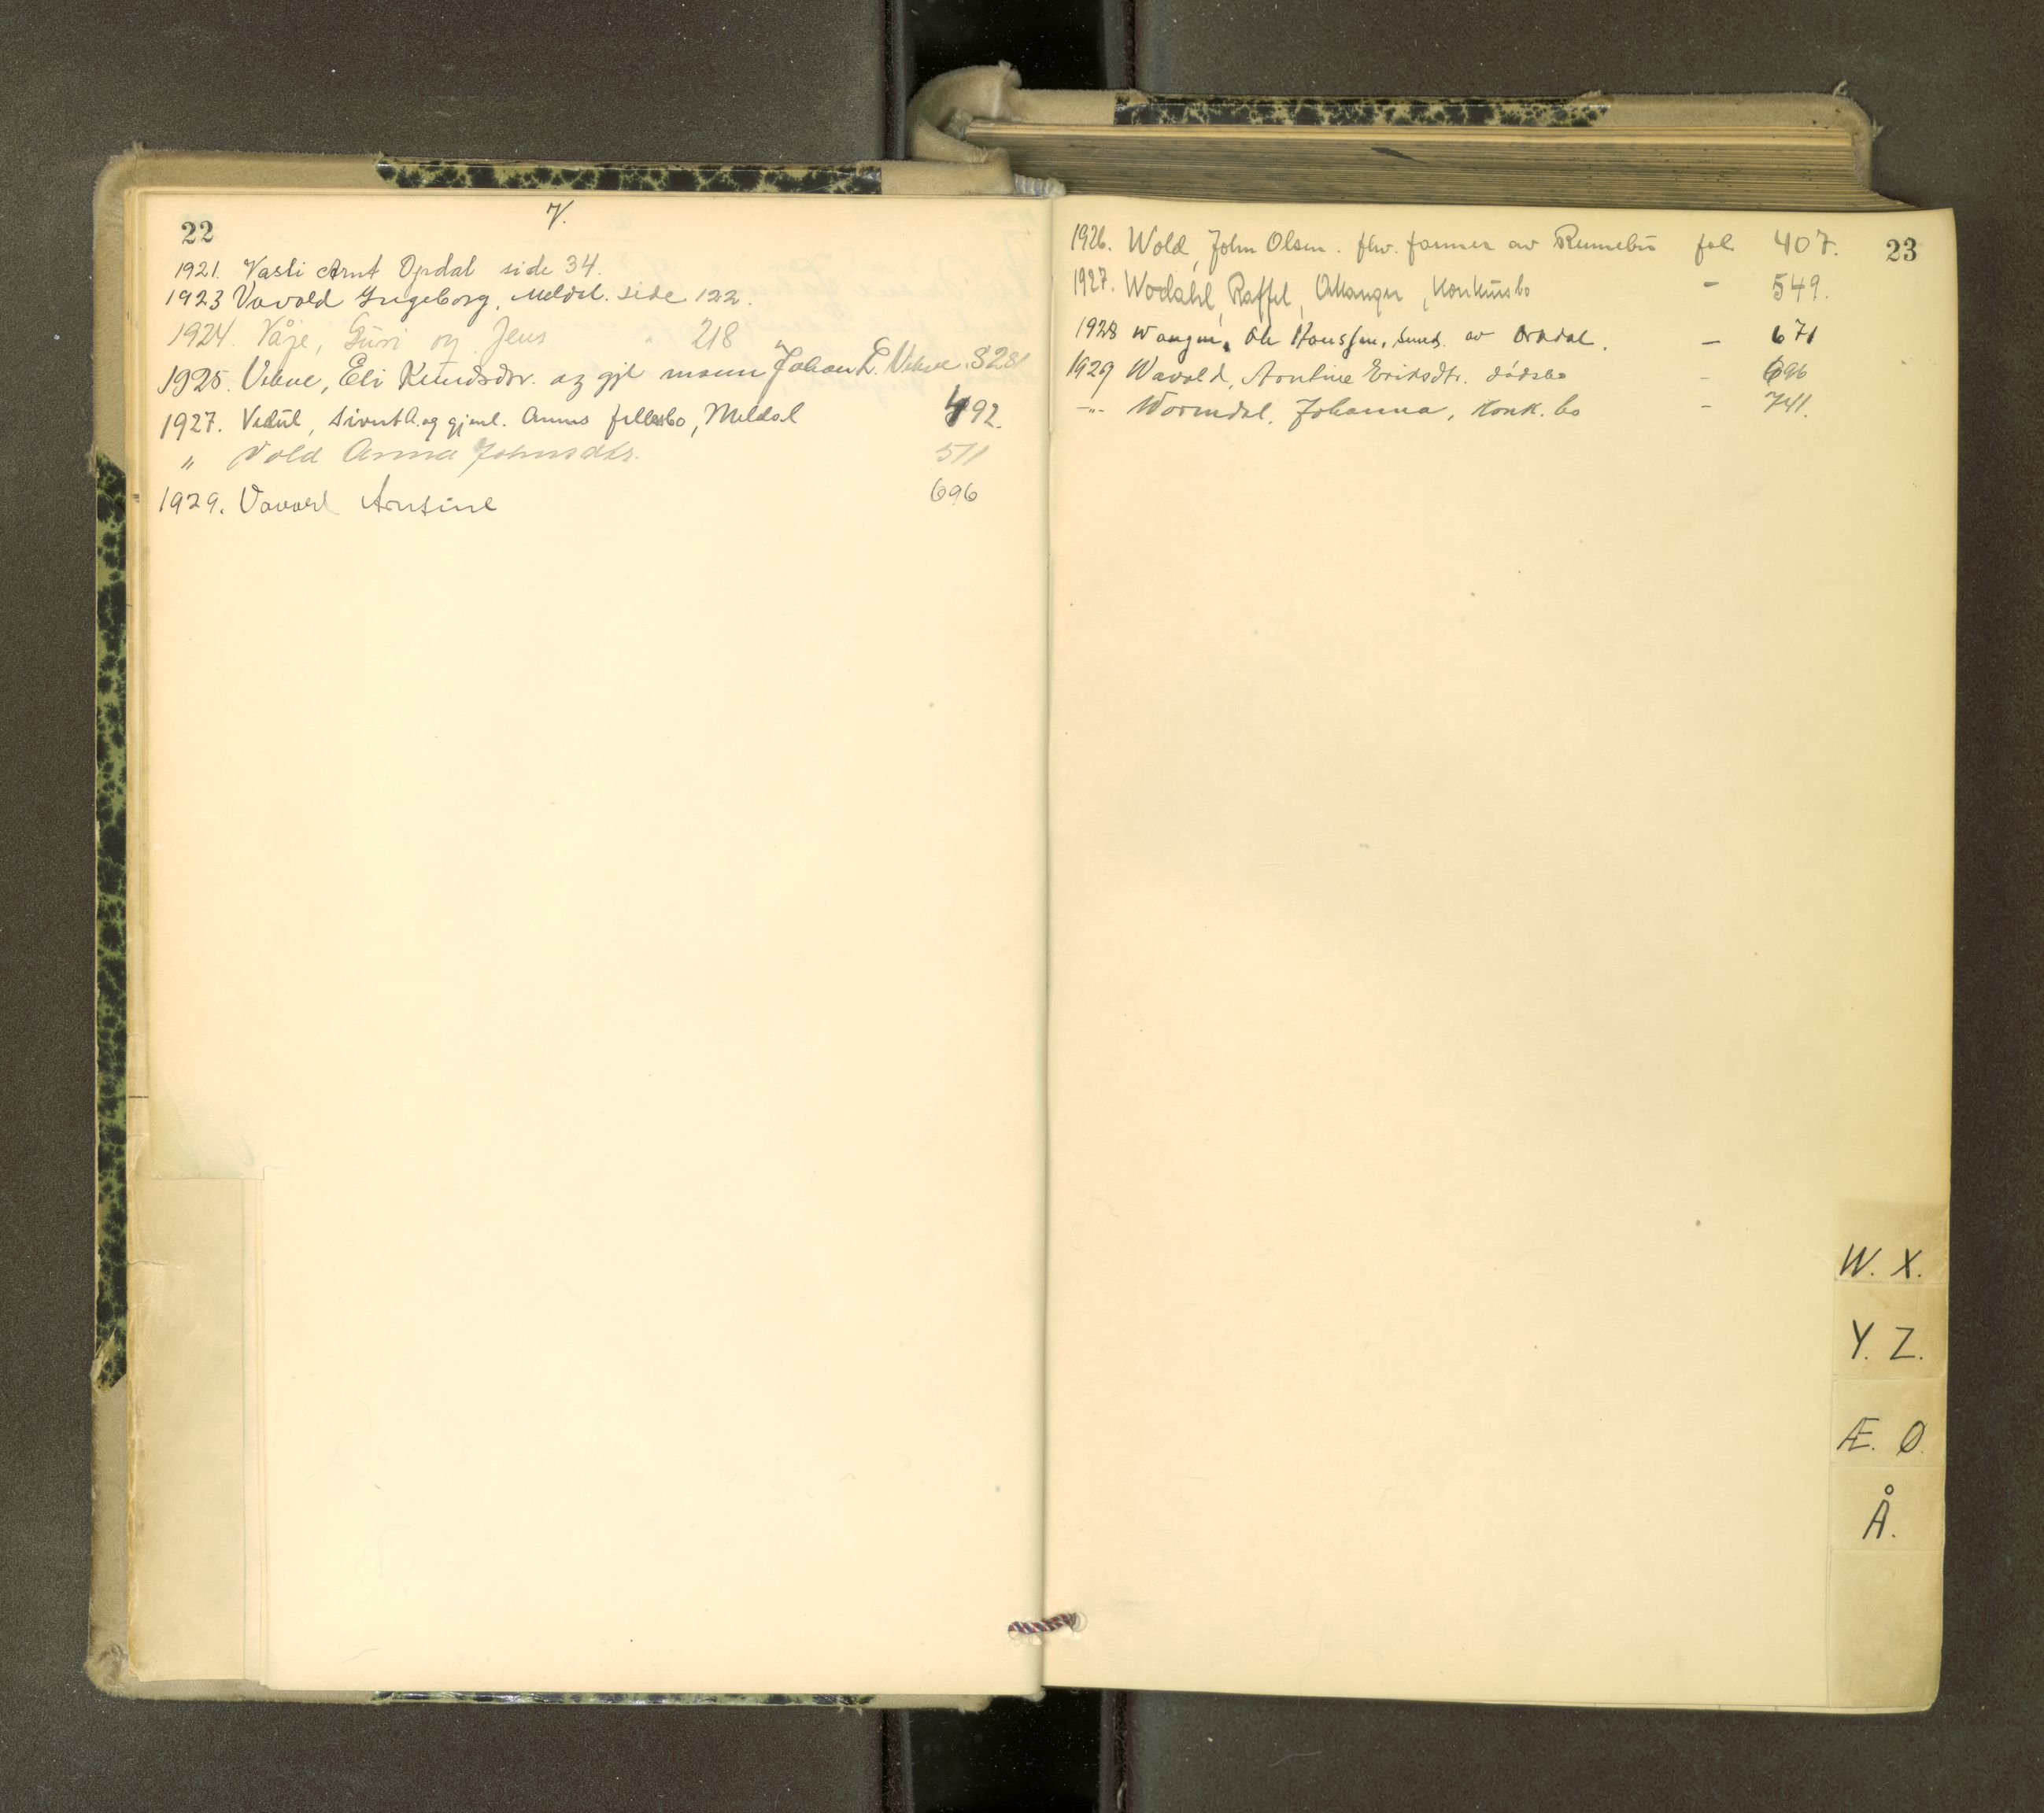 22
V.
1921. Vasli Arnt Opdal side 34.
1923 Vavold Ingeborg, Meldal. side 122.
1924. Våje, Guri og Jens " 218
1925. Vekve, Eli Knudsdtr. og gjl mann Johan L. Vekve. 328
1927. Sivert A. og gjenl. Annas fellesbo, Meldal 492.
" Vold Anna Johnsdtr. 511
1929. Vavold Arntine 696
23
1926. Wold, John Olsen. fhv. farmer av Rennebu fol 407.
1927. Wodahl, Raffel, Orkanger, Konkursbo - 549.
1928 Wangen, Ole Hanssen, av Orkdal. - 671
1929 Wavold, Arntine Eriksdtr. dødsbo - 696
-"- Wormdal, Johanna, Konk. bo - 741.
W. X.
Y. Z.
Æ. Ø.
Å.